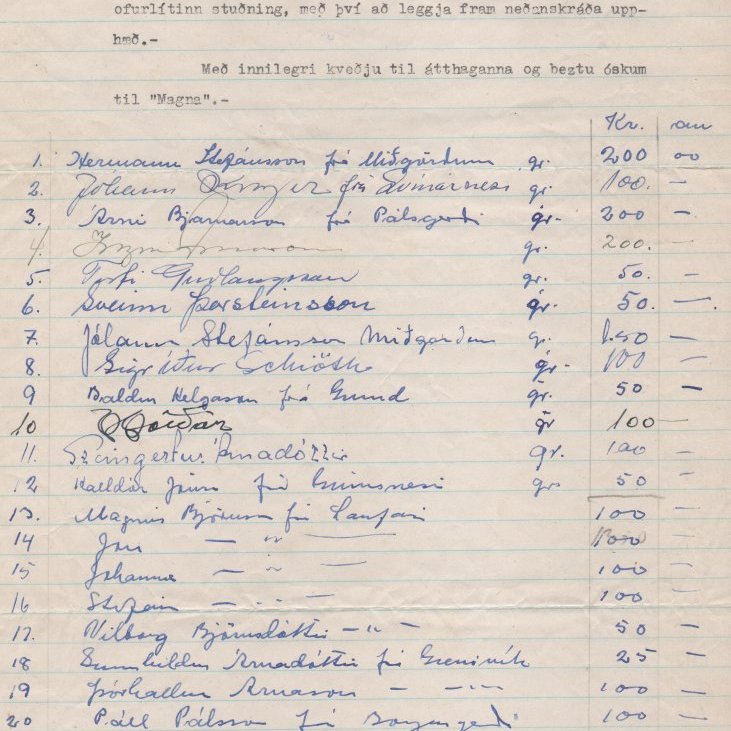 ofurlítinn stuðning, með því að leggja fram neðanskráða upp-
hæð.-
Með innilegri kveðju til átthaganna og beztu óskum
til "Magna".-
Kr. au
1. Hermann Stefánsson frá Miðgörðum gr. 200 00
2. Jóhann frá gr. 100. —
3. Arni Bjarnarson frá Pálsgerði gr. 200 —
4. gr. 200. —
5. Torfi Guðlaugsson gr. 50. —
6. Sveinn Þorsteinsson gr. 50. —.
7. Jóhann Stefánsson Miðgörðum gr. 50 —
8. Sigríður Schiöth gr. 100 —
9 Baldur Helgason frá Grund gr. 50 —
10 gr 100 —
11. Steingerður Árnadóttir gr. 100 —
12 Halldór Jónss frá Grímsnesi gr 50 —
13. Magnús Björnsson frá Laufási 100 —
14 Jón — " — —
15 Jóhanna — " — 100 —
16 Stefán — " — 100 —
17. Vilborg Björnsdóttir — " — 50 —
18 Gunnhildur Árnadóttir frá Grenivík 25 —
19 Þórhallur Arnason — — " — 100 —
20 Páll Pálsson frá 100 —